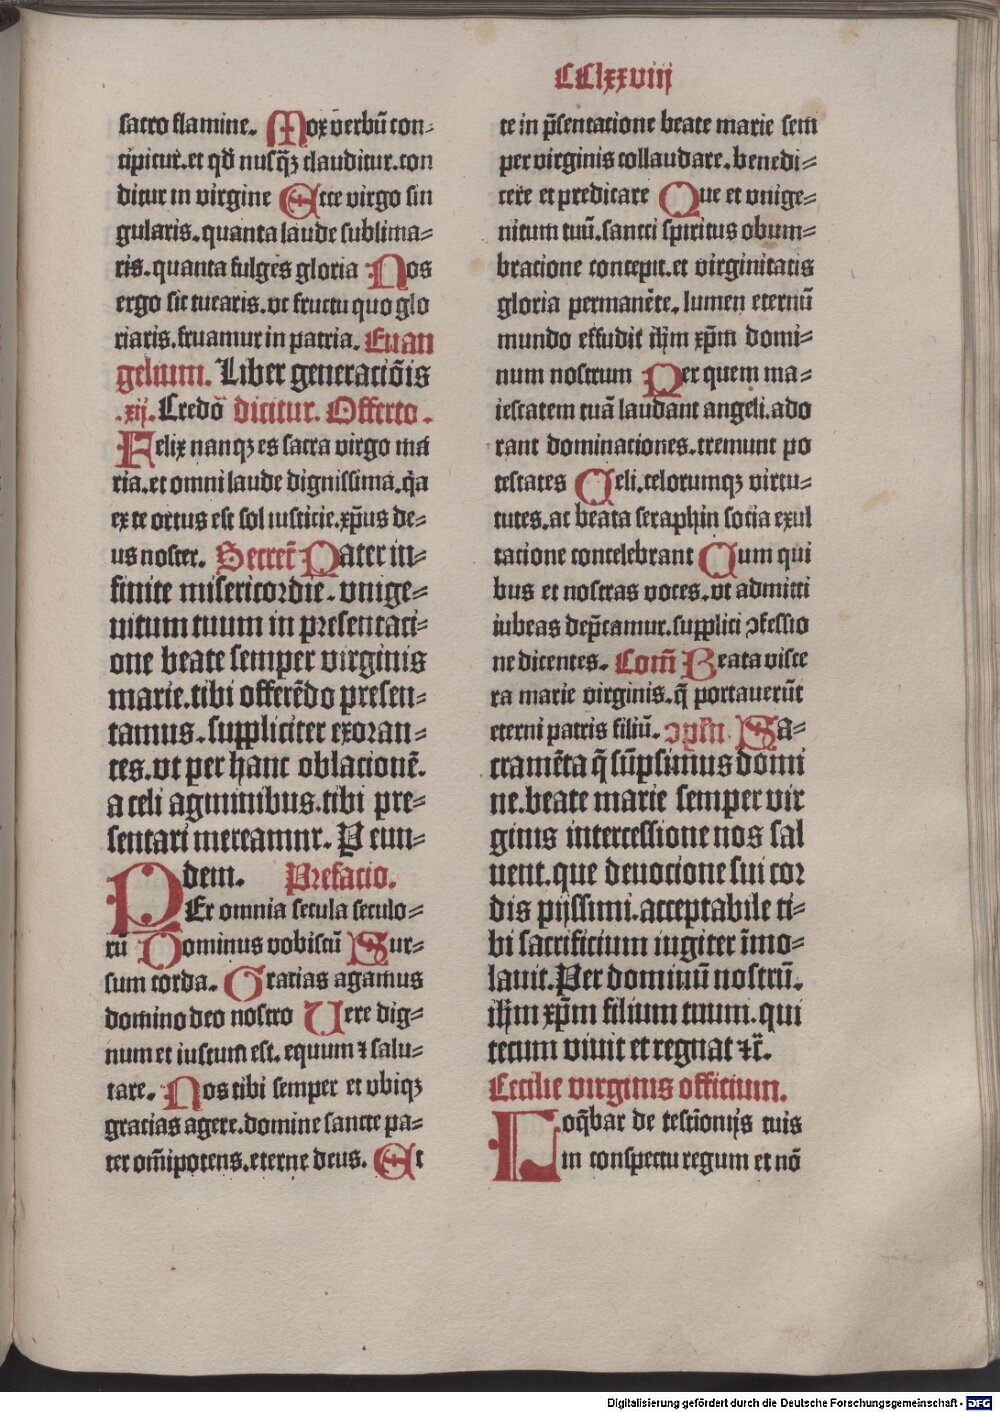 CClxxviij
sacro flamine. Mox verbū con⸗
cipitur. et qđ nusq̄ꝫ clauditur. con
ditur in virgine Ecce virgo sin
gularis. quanta laude sublima⸗
ris. quanta fulges gloria Nos
ergo sic tuearis. vt fructu quo glo
riaris. fruamur in patria. Euan
gelium. Liber generaciōis
.xij. Credo dicitur. Offerto.
Felix nanqꝫ es sacra virgo ma
ria. et omni laude dignissima. q̄a
ex te ortus est sol iusticie. xp̄us de⸗
us noster. Secret̄ Pater in⸗
finite misericordie. vnige⸗
nitum tuum in presentaci⸗
one beate semper virginis
marie. tibi offerēdo presen⸗
tamus. suppliciter exoran⸗
tes. vt per hanc oblacionē.
a celi agminibus. tibi pre⸗
sentari mereamur. P eun⸗
dem. Prefacio.
PEr omnia secula seculo⸗
rū Dominus vobiscū Sur⸗
sum corda. Gracias agamus
domino deo nostro Uere dig⸗
num et iustum est. equum ⁊ salu⸗
tare. Nos tibi semper et vbiqꝫ
gracias agere. domine sancte pa⸗
ter om̄ipotens. eterne deus. Et
te in p̄sentacione beate marie sem
per virginis collaudare. benedi⸗
cere et predicare Que et vnige⸗
nitum tuū. sancti spiritus obum⸗
bracione concepit. et virginitatis
gloria permanēte. lumen eternū
mundo effudit ihm xp̄m domi⸗
num nostrum Per quem ma⸗
iestatem tuā laudant angeli. ado
rant dominaciones. tremunt po
testates Celi. celorumqꝫ virtu⸗
tutes. ac beata seraphin socia exul
tacione concelebrant Cum qui
bus et nostras voces. vt admitti
iubeas dep̄camur. supplici ꝯfessio
ne dicentes. Com̄ Beata visce
ra marie virginis. q̄ portauerūt
eterni patris filiū. ꝯpl̄n Sa⸗
cramēta q̄ sūpsimus domi
ne. beate marie semper vir
ginis intercessione nos sal
uent. que deuocione sui cor
dis pijssimi. acceptabile ti⸗
bi sacrificium iugiter īmo⸗
lauit. Per dominū nostrū.
ihm xp̄m filium tuum. qui
tecum viuit et regnat ⁊c̄.
Cecilie virginis officium.
Loq̄bar de testiōnijs tuis
in conspectu regum et nō
Digitalisierung gefördert durch die Deutsche Forschungsgemeinschaft - DFG